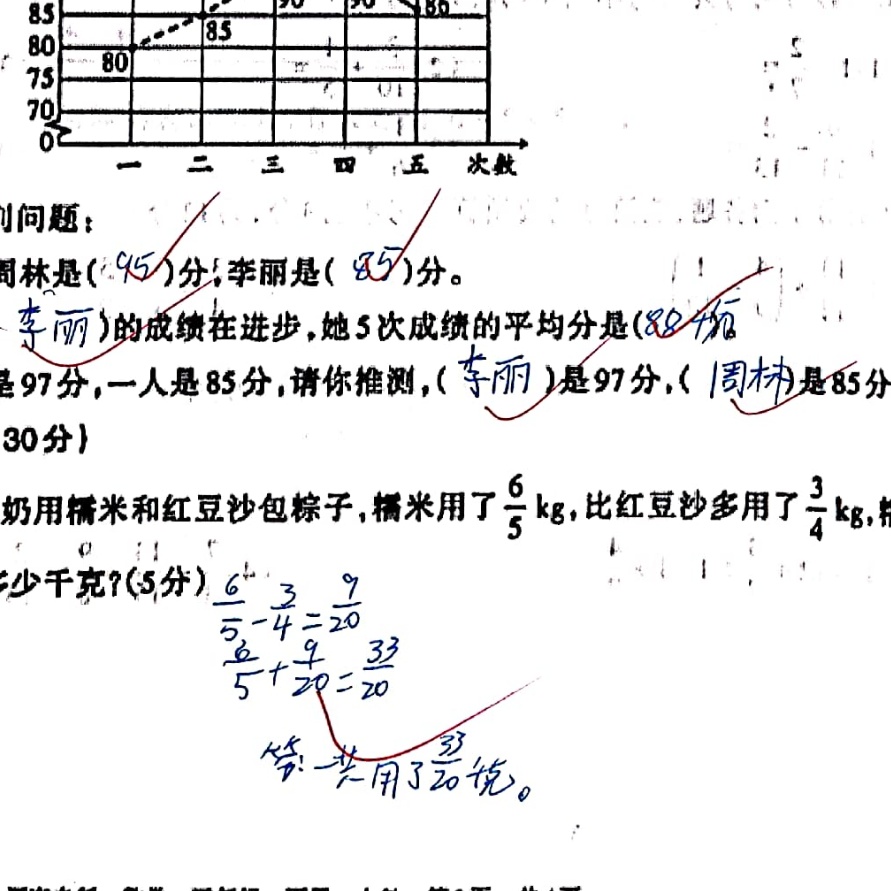 85 90 90 86
80 80 85
75
70
0
一 二 三 四 五 次数
问题:
周林是( 95 )分,李丽是( 85 )分。
李丽)的成绩在进步,她5次成绩的平均分是(88.4
是97分,一人是85分,请你推测,( 李丽 )是97分,( 周林 )是85分
30分)
奶用糯米和红豆沙包粽子,糯米用了6/5 kg,比红豆沙多用了3/4 kg,
少千克?(5分)
6/5-3/4=9/20
6/5+9/20=33/20
答:一共用了33/20千克。